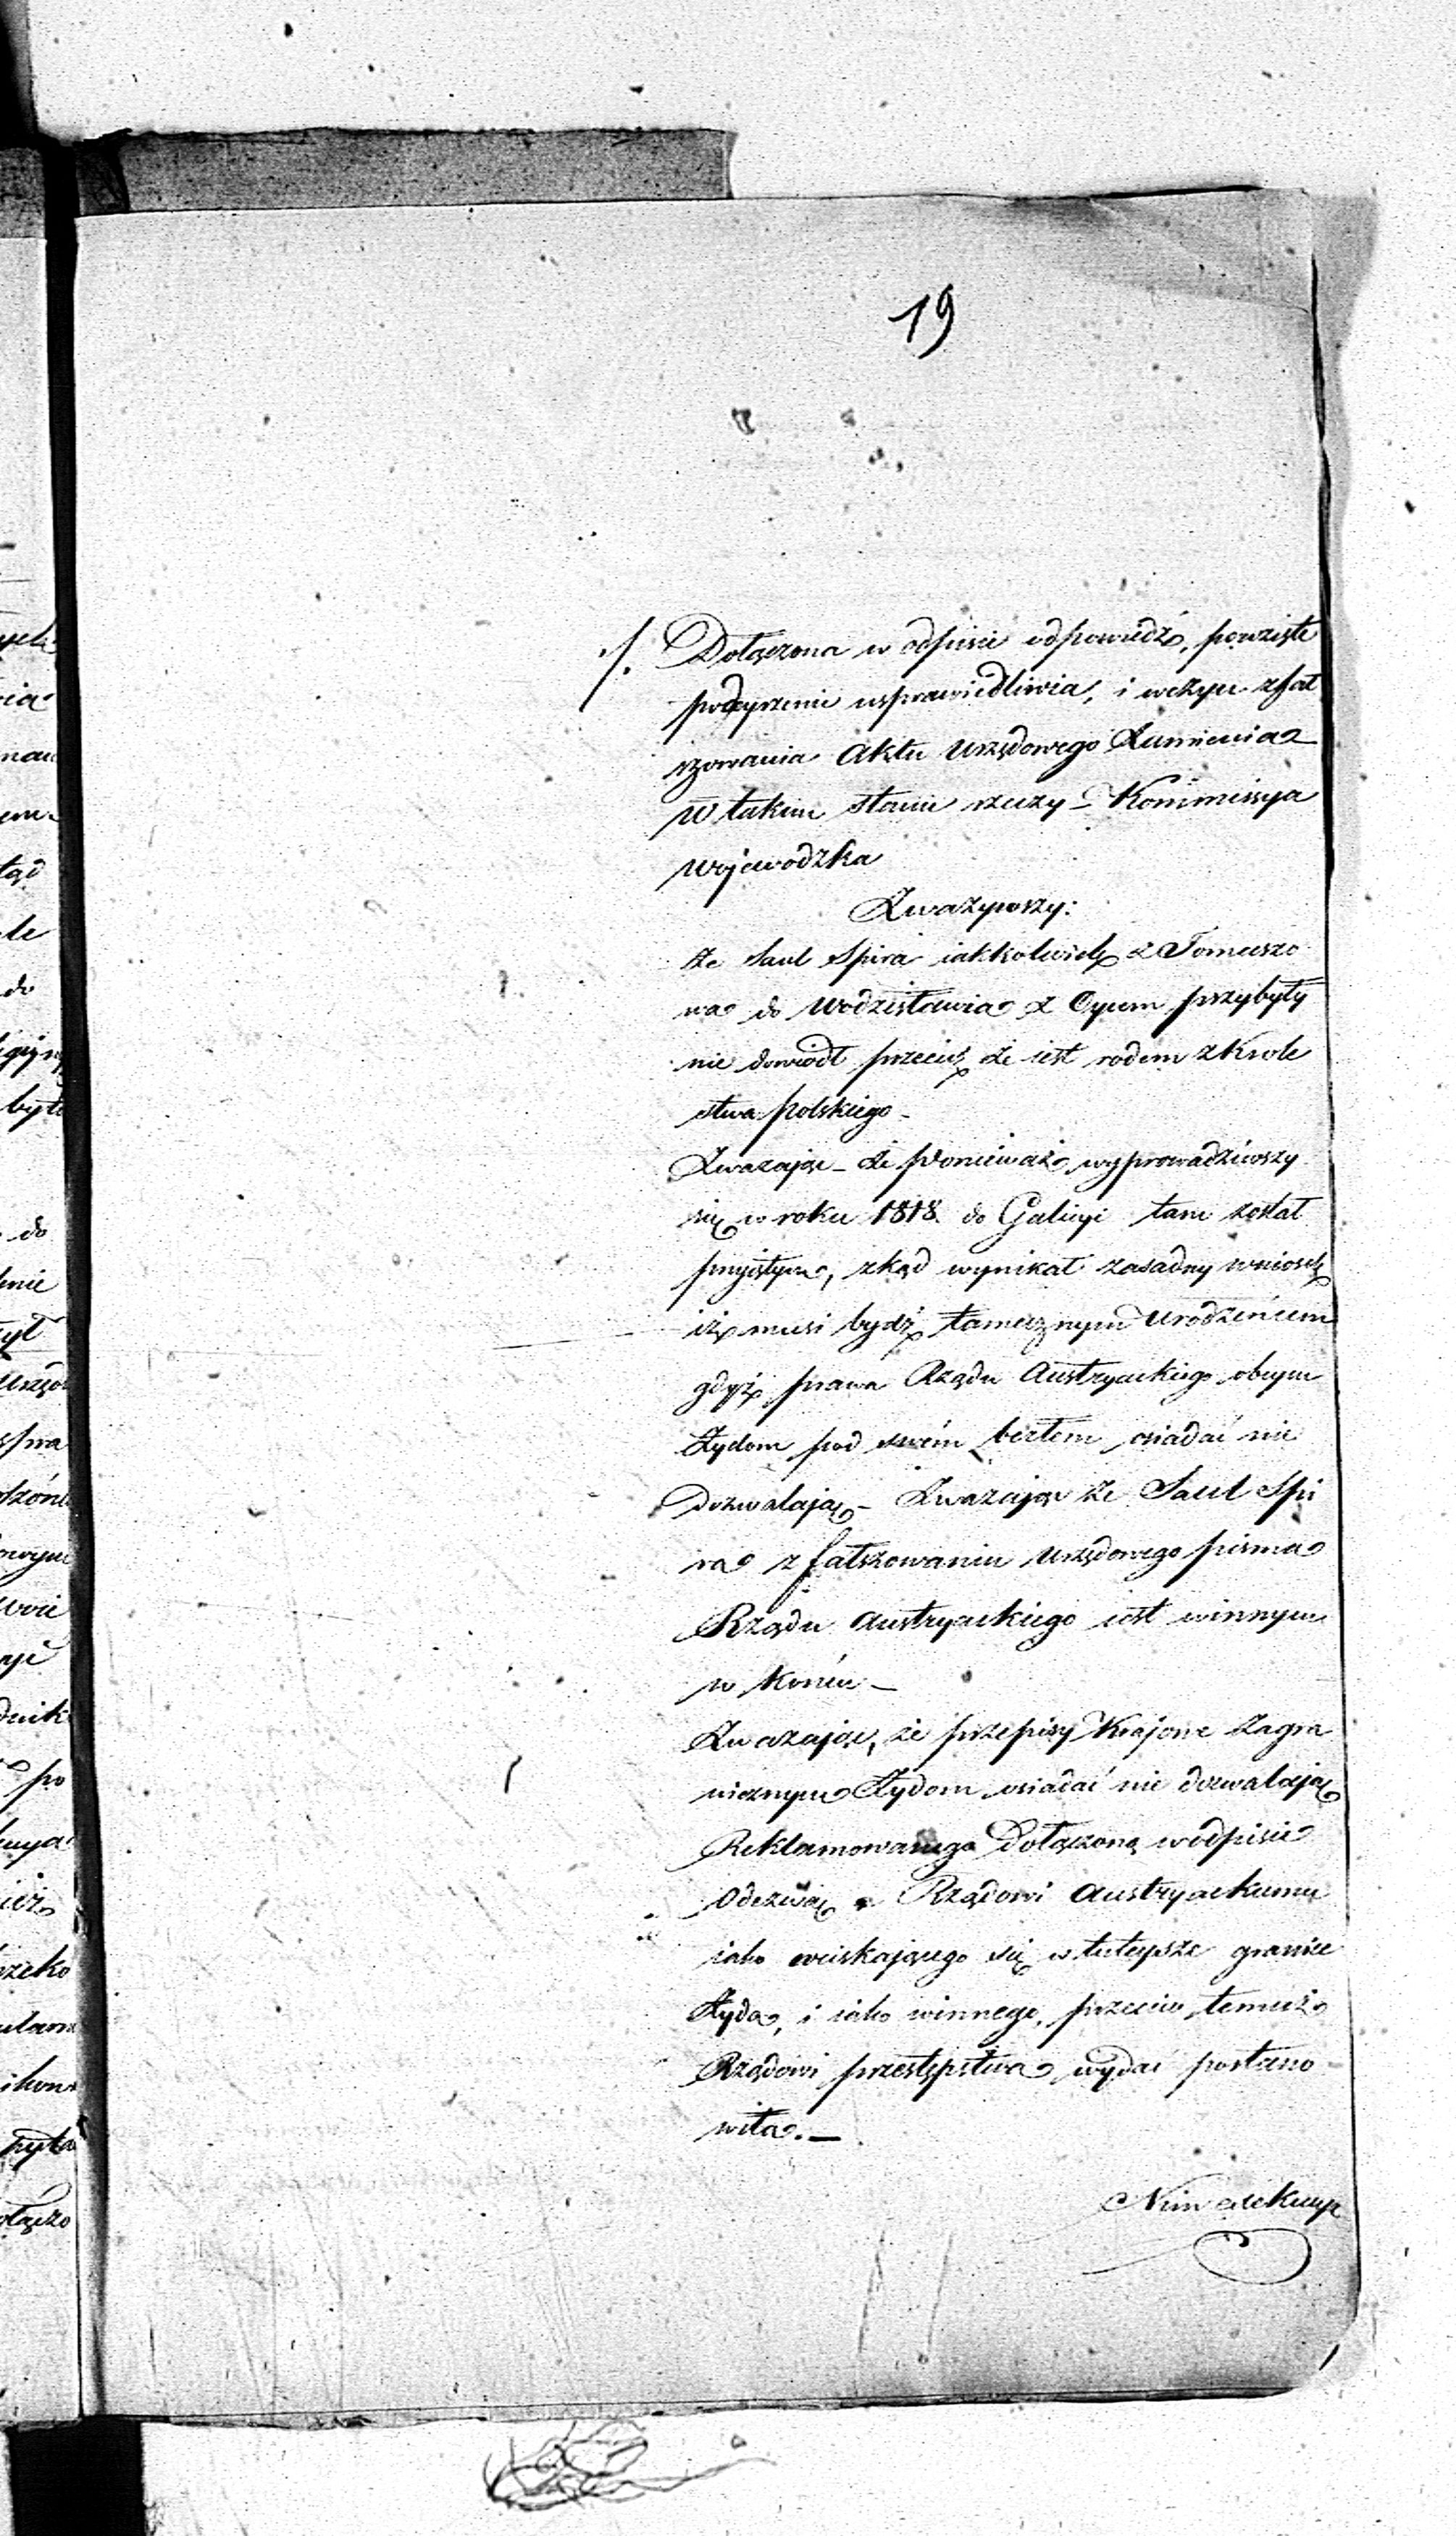 19
./. Dołączona w odpisie odpowiedź, powzięte
podeyrzenie usprawiedliwia, i wczyn zfał
szowania Aktu Urzędowego Zamienia
W takim stanie rzeczy – Kommissya
Wojewodzka
Zwazywszy:
że Saul Spira iakkolwiek z Tomaszo
wa do Wodzisławia z Oycem przybyły
nie dowiodł przecież że iest rodem z Krole
stwa polskiego –
Zwazając – że Ponieważ wyprowadziwszy
się w roku 1818. do Galicyi tam został
przyiętym, zkąd wynikał zasadny wniosek
iż musi bydź tamecznym Urodzeńcem
gdyż prawa Rządu Austryackiego obcym
Żydom pod swém berłem osiadać nie
dozwalają – Zwazając że Saul Spi
ra z fałszowaniu Urzędowego pisma
Rządu Austryackiego iest winnym
w końcu –
Zwazając, że przepisy Krajowe Zagra
nicznym Żydom osiadać nie dozwalają
Reklamowanego Dołączoną w odpisie
Odezwą Rządowi Austryackiemu
iako wciskającego się w tuteysze granice
Żyda, i iako winnego, przeciw temuż
Rządowi przestępstwa wydać postano
wiła. –